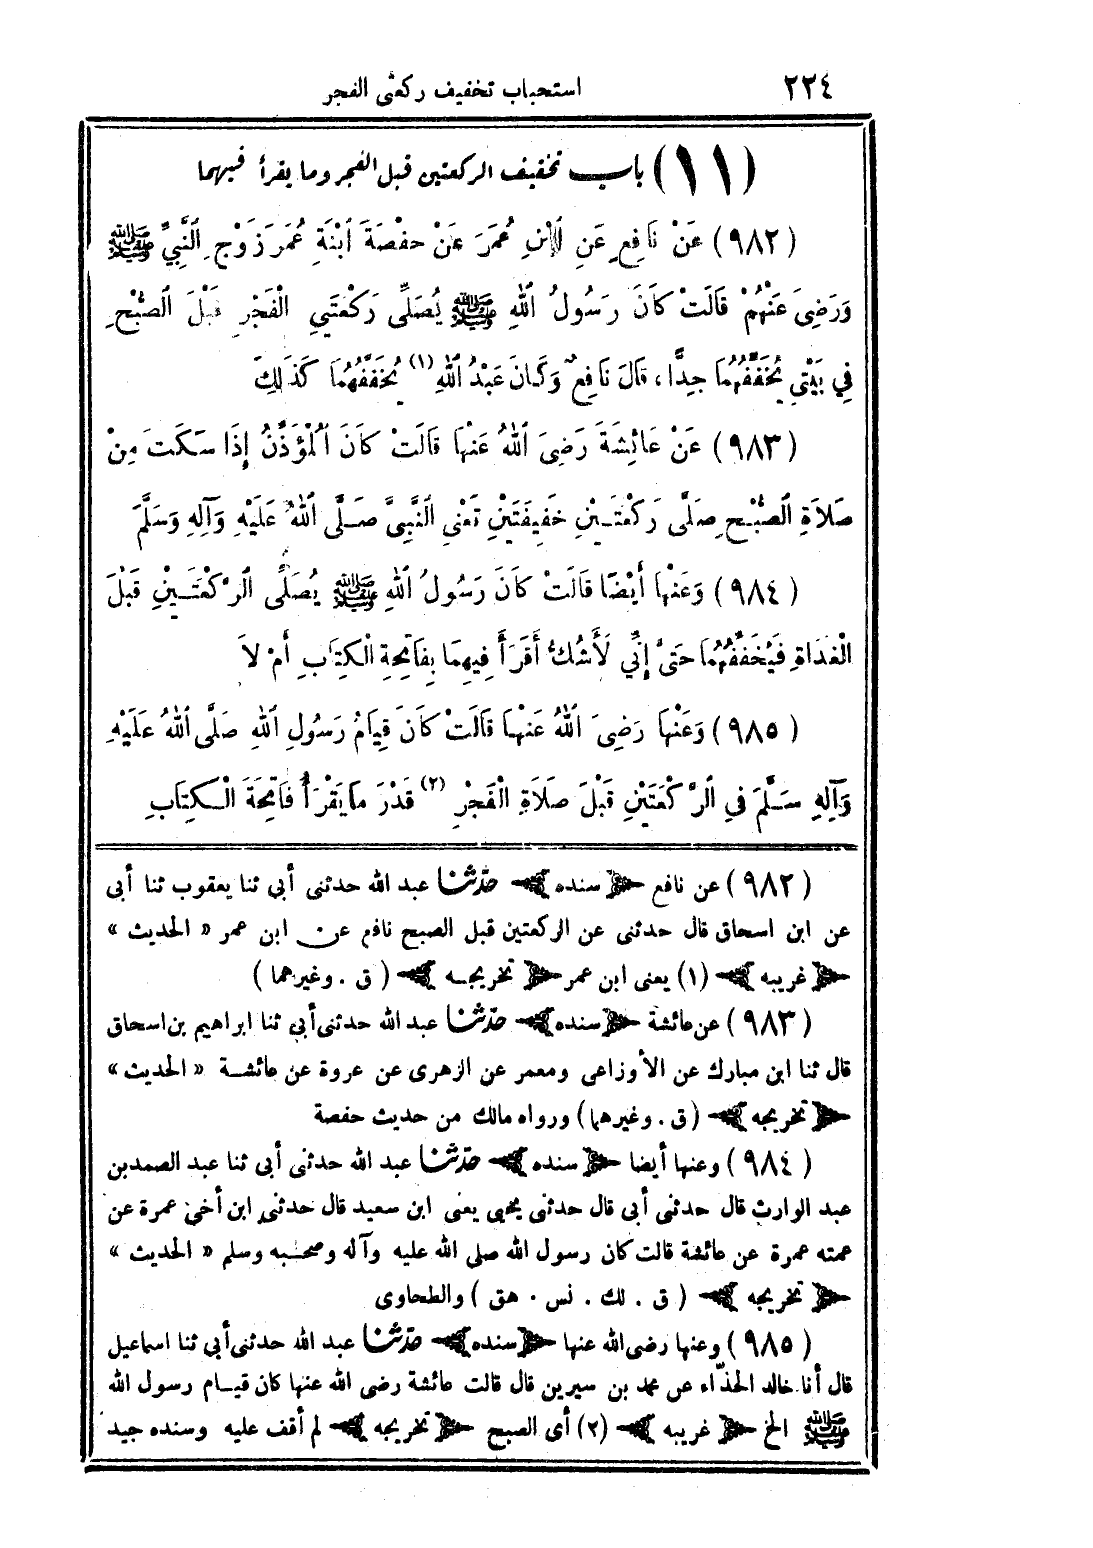 ٢٢٤ استحباب تخفيف ركعتى الفجر
(١١) باب تخفيف الركعتين قبل الفجر وما يقرأ فيهما
(٩٨٢) عَنْ نَافِعٍ عَنِ ابْنِ عُمَرَ عَنْ حَفْصَةَ ابْنَةِ عُمَرَ زَوْجِ النَّبِيِّ ﷺ
وَرَضِيَ عَنْهُمْ قَالَتْ كَانَ رَسُولُ اللهِ ﷺ يُصَلِّي رَكْعَتَيِ الْفَجْرِ قَبْلَ الصُّبْحِ
فِي بَيْتِي يُخَفِّفُهُمَا جِدًّا، قَالَ نَافِعٌ وَكَانَ عَبْدُ اللهِ (١) يُخَفِّفُهُمَا كَذَلِكَ
(٩٨٣) عَنْ عَائِشَةَ رَضِيَ اللهُ عَنْهَا قَالَتْ كَانَ الْمُؤَذِّنُ إِذَا سَكَتَ مِنْ
صَلَاةِ الصُّبْحِ صَلَّى رَكْعَتَيْنِ خَفِيفَتَيْنِ تَعْنِي النَّبِيَّ صَلَّى اللهُ عَلَيْهِ وَآلِهِ وَسَلَّمَ
(٩٨٤) وَعَنْهَا أَيْضًا قَالَتْ كَانَ رَسُولُ اللهِ ﷺ يُصَلِّي الرَّكْعَتَيْنِ قَبْلَ
الْغَدَاةِ فَيُخَفِّفُهُمَا حَتَّى إِنِّي لَأَشُكُّ أَقَرَأَ فِيهِمَا بِفَاتِحَةِ الْكِتَابِ أَمْ لَا
(٩٨٥) وَعَنْهَا رَضِيَ اللهُ عَنْهَا قَالَتْ كَانَ قِيَامُ رَسُولِ اللهِ صَلَّى اللهُ عَلَيْهِ
وَآلِهِ سَلَّمَ فِي الرَّكْعَتَيْنِ قَبْلَ صَلَاةِ الْفَجْرِ (٢) قَدْرَ مَا يَقْرَأُ فَاتِحَةَ الْكِتَابِ
(٩٨٢) عن نافع ﴿سنده﴾ حدّثنا عبد الله حدثنى أبى ثنا يعقوب ثنا أبى
عن ابن اسحاق قال حدثنى عن الركعتين قبل الصبح نافع عن ابن عمر « الحديث »
﴿غريبه﴾ (١) يعنى ابن عمر ﴿تخريجه﴾ ( ق . وغيرهما )
(٩٨٣) عن عائشة ﴿سنده﴾ حدّثنا عبد الله حدثنى أبى ثنا ابراهيم بن اسحاق
قال ثنا ابن مبارك عن الأوزاعى ومعمر عن الزهرى عن عروة عن عائشة « الحديث »
﴿تخريجه﴾ (ق . وغيرهما) ورواه مالك من حديث حفصة
(٩٨٤) وعنها أيضا ﴿سنده﴾ حدّثنا عبد الله حدثنى أبى ثنا عبد الصمد بن
عبد الوارث قال حدثنى أبى قال حدثنى يحيى يعنى ابن سعيد قال حدثنى ابن أخى عمرة عن
عمته عمرة عن عائشة قالت كان رسول الله صلى الله عليه وآله وصحبه وسلم « الحديث »
﴿تخريجه﴾ ( ق . لك . نس . هق ) والطحاوى
(٩٨٥) وعنها رضى الله عنها ﴿سنده﴾ حدّثنا عبد الله حدثنى أبى ثنا اسماعيل
قال أنا خالد الحذّاء عن محمد بن سيرين قال قالت عائشة رضى الله عنها كان قيام رسول الله
ﷺ الخ ﴿غريبه﴾ (٢) أى الصبح ﴿تخريجه﴾ لم أقف عليه وسنده جيد